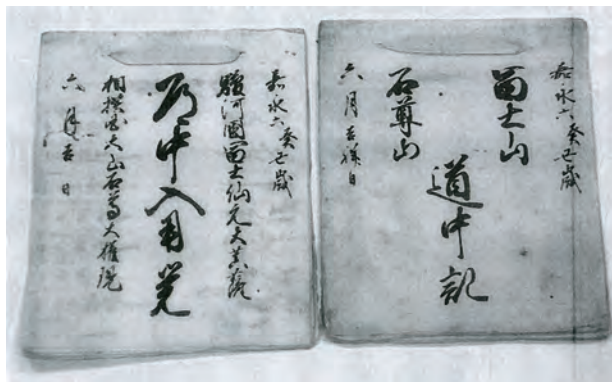 嘉永六癸丑歳
冨士山
道中記
石尊山
六月吉祥日
嘉永六癸丑歳
駿河國冨士仙元大菩薩
道中入用覚
相模国大山石尊大権現
六月吉日